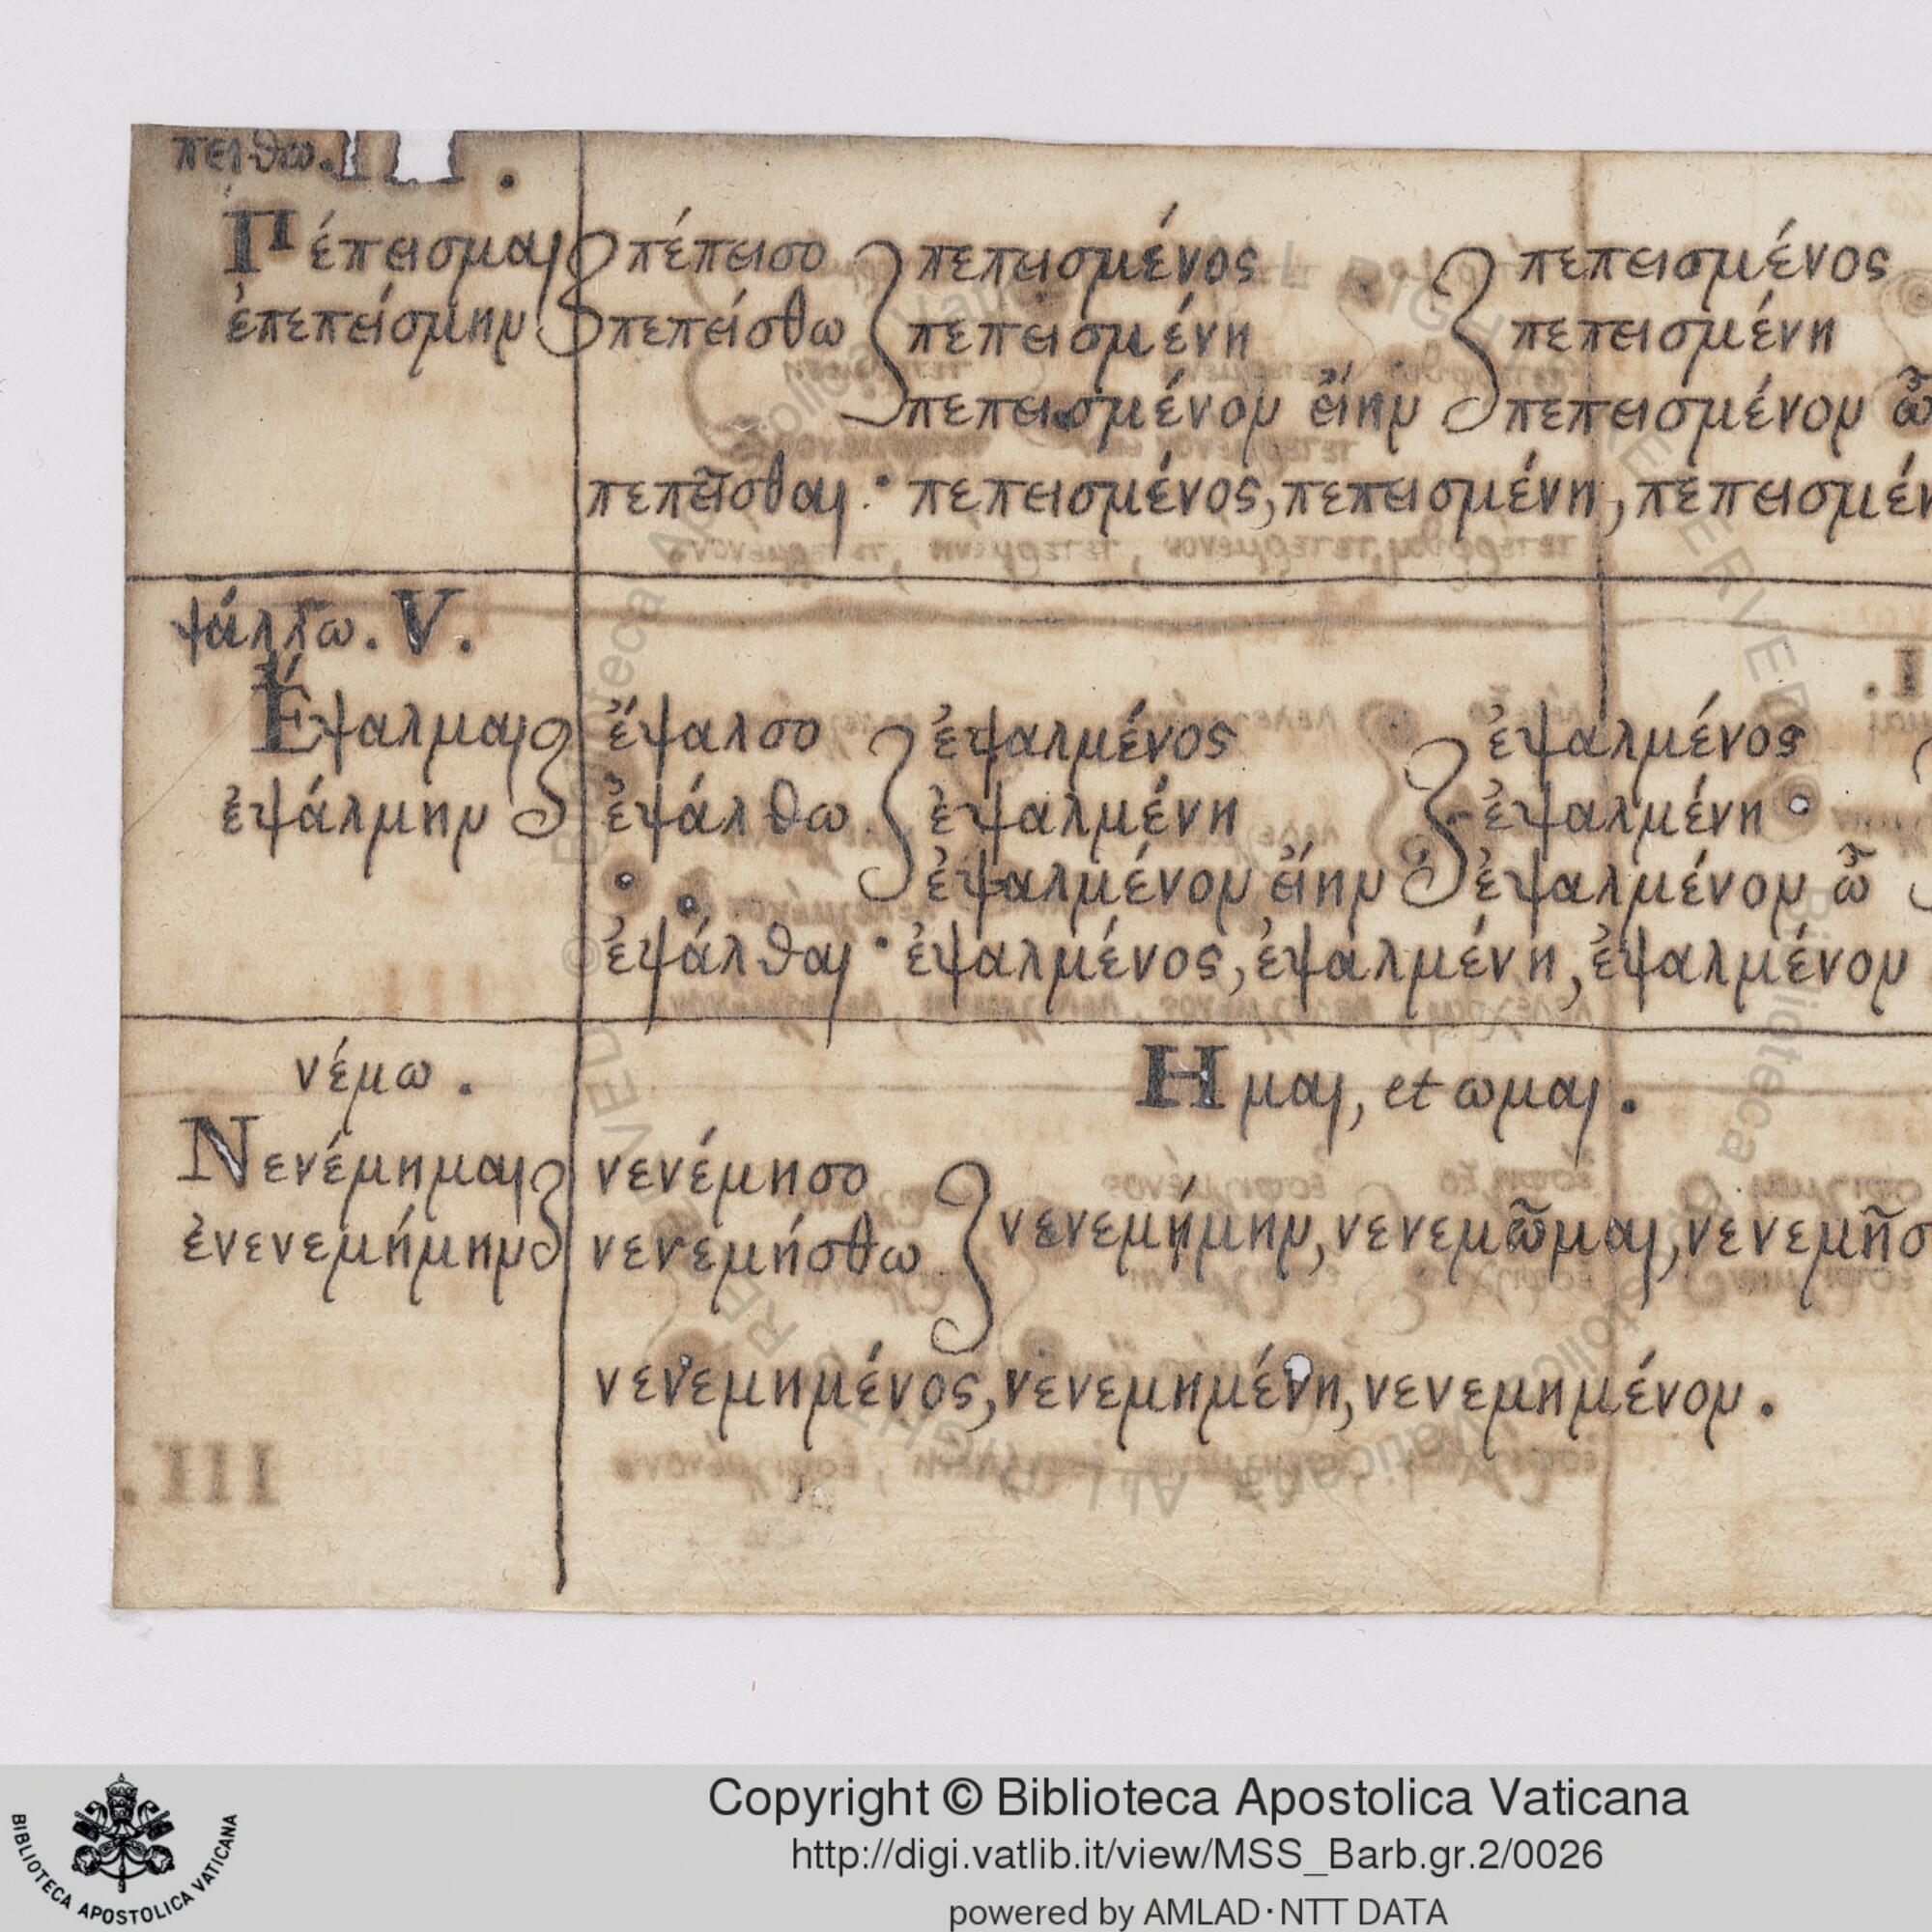 πειθω. III.
Πέπεισμαι πέπεισο πεπεισμένος πεπεισμένος
ἐπεπείσμην πεπείσθω πεπεισμένη πεπεισμένη
πεπεισμένον εἴην πεπεισμένον ὦ
πεπεῖσθαι · πεπεισμένος, πεπεισμένη, πεπεισμέν
ψάλλω. V.
Ἔψαλμαι ἔψαλσο ἐψαλμένος ἐψαλμένος
ἐψάλμην ἐψάλθω ἐψαλμένη ἐψαλμένη
ἐψαλμένον εἴην ἐψαλμένον ὦ
ἐψάλθαι · ἐψαλμένος, ἐψαλμένη, ἐψαλμένον
νέμω. Ημαι, et ωμαι.
Νενέμημαι νενέμησο
ἐνενεμήμην νενεμήσθω νενεμῄμην, νενεμῶμαι, νενεμῆσ
νενεμημένος, νενεμημένη, νενεμημένον.
Copyright © Biblioteca Apostolica Vaticana
http://digi.vatlib.it/view/MSS_Barb.gr.2/0026
powered by AMLAD·NTT DATA
BIBLIOTECA APOSTOLICA VATICANA